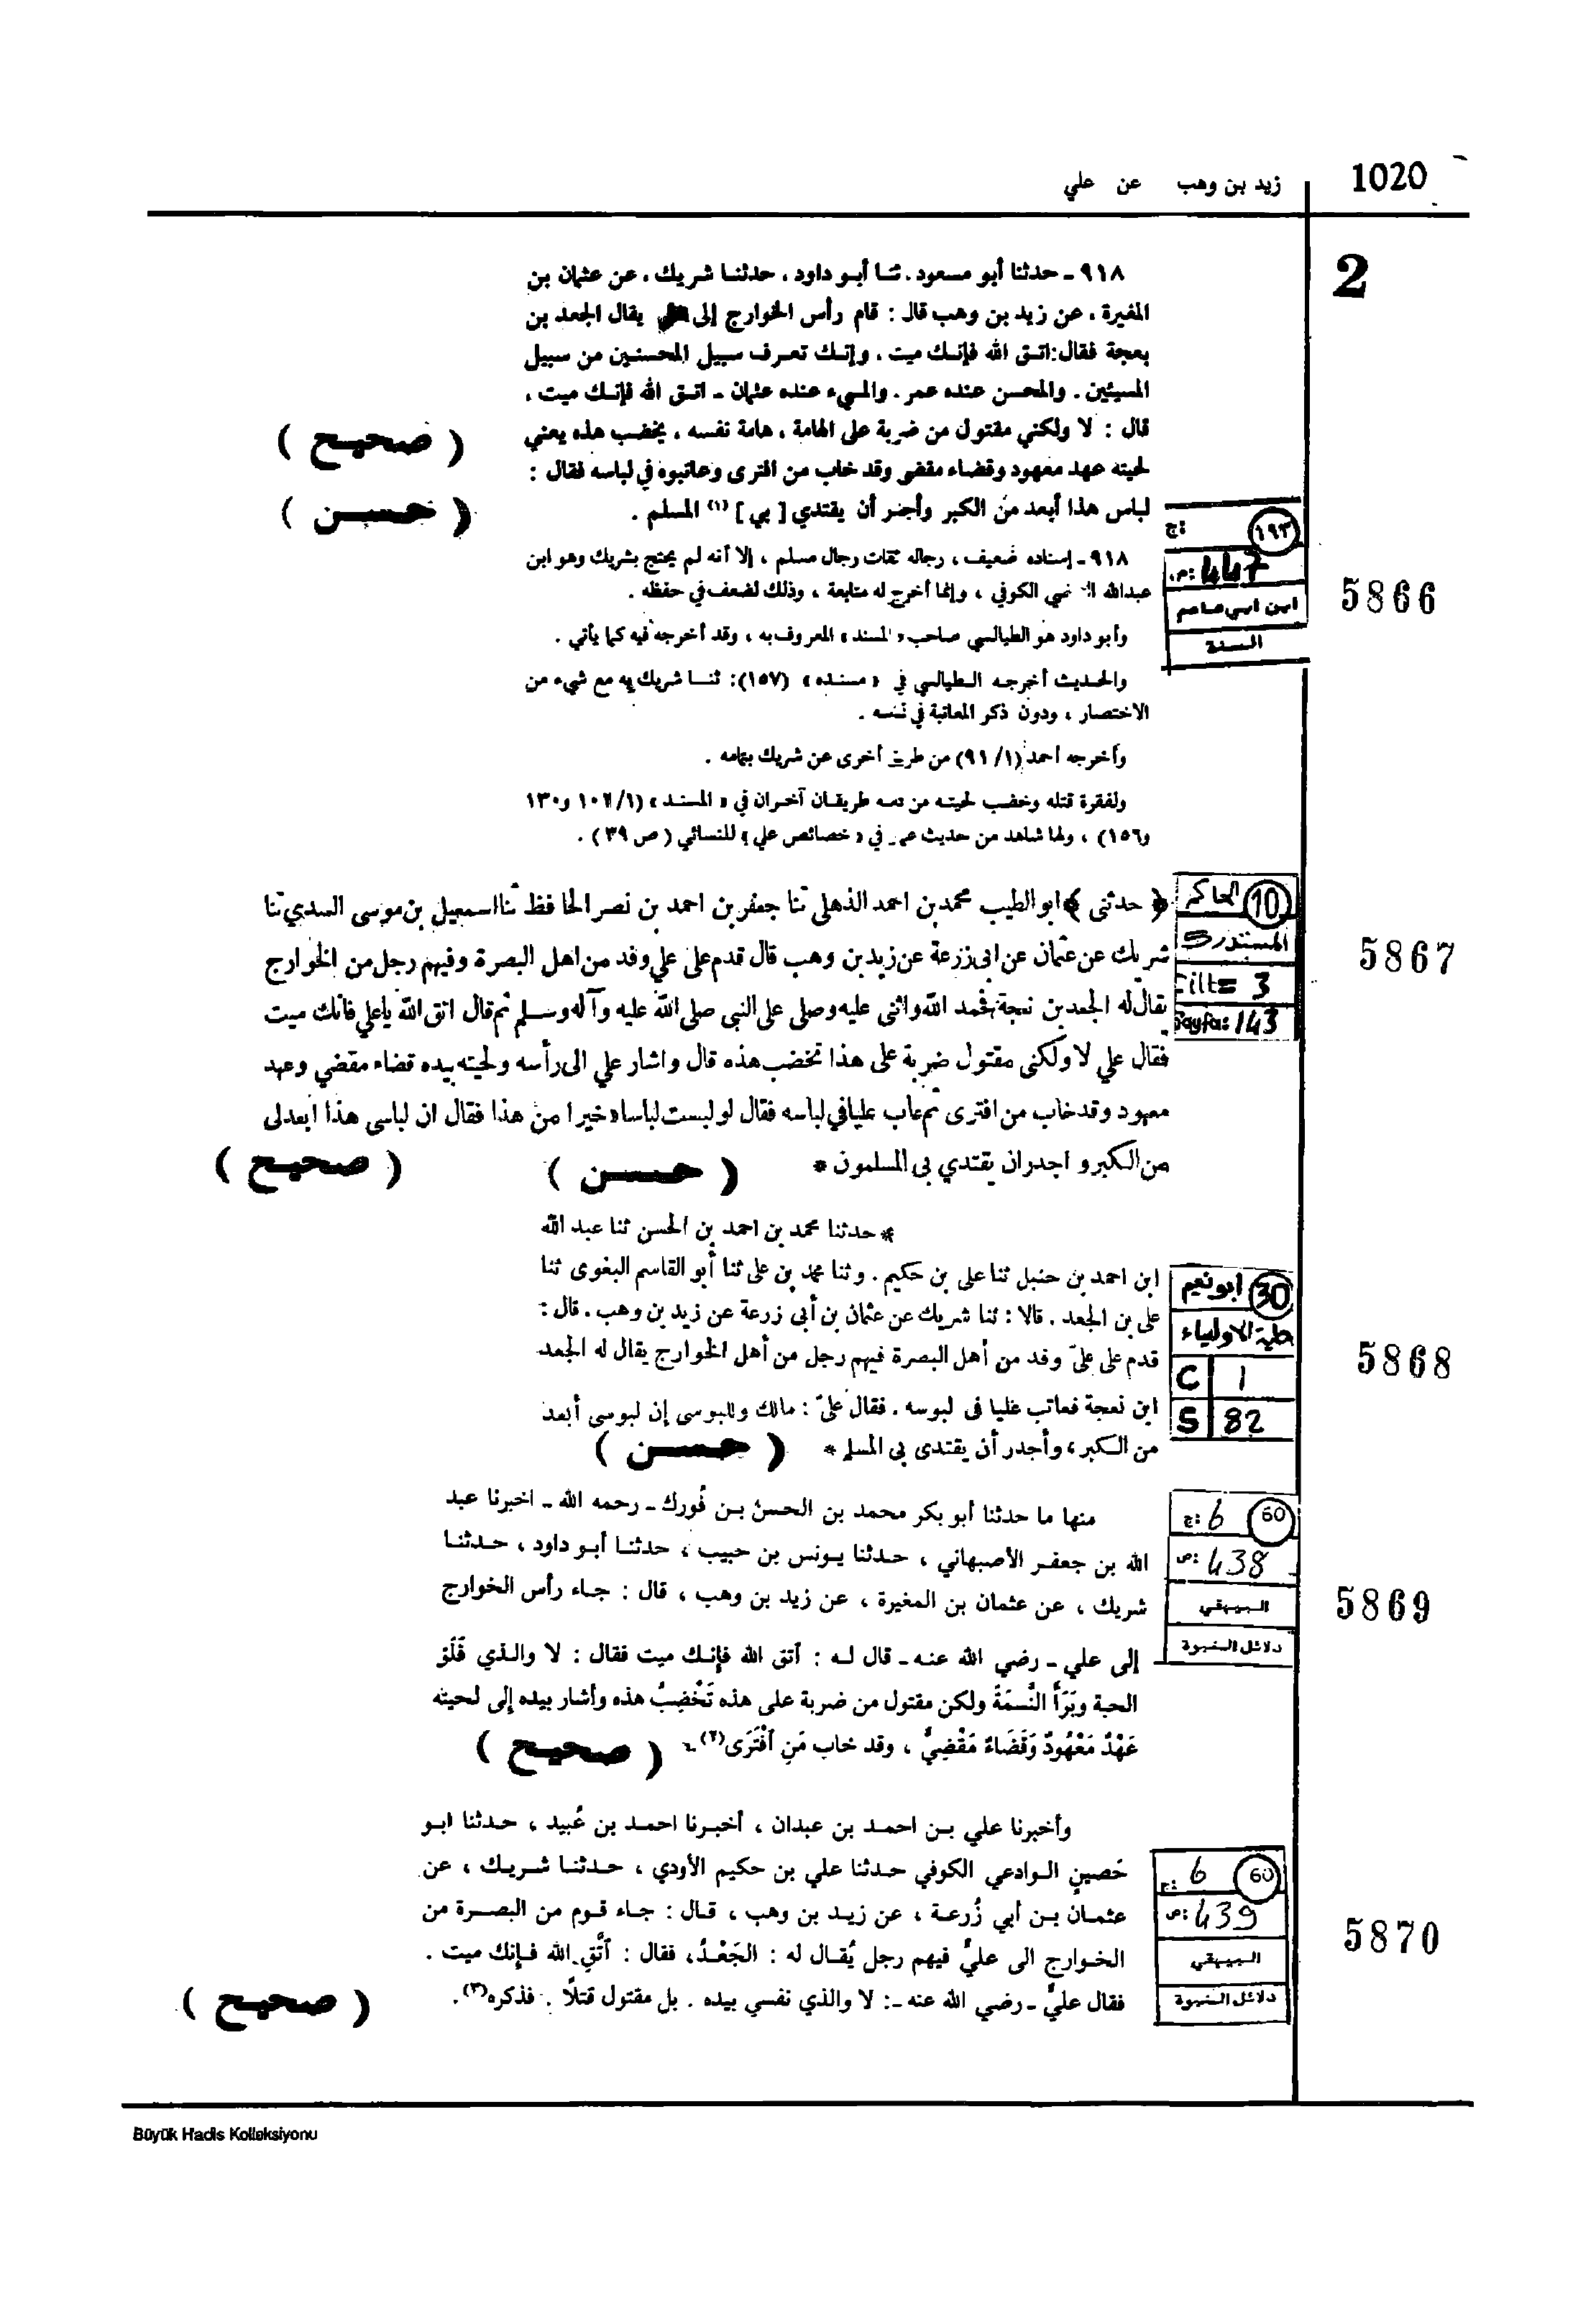 1020
زيد بن وهب عن علي
2
٩١٨ ـ حدثنا أبو مسعود . ثنا أبو داود ، حدثنا شريك ، عن عثمان بن
المغيرة ، عن زيد بن وهب قال : قام رأس الخوارج إلى يقال الجعد بن
بعجة فقال : اتق الله فإنك ميت ، وإنك تعرف سبيل المحسنين من سبيل
المسيئين . والمحسن عنده عمر . والمسيء عنده عثمان ـ اتق الله فإنك ميت ،
قال : لا ولكني مقتول من ضربة على الهامة ، هامة نفسه ، يخضب هذه يعني
( صحيح )
لحيته عهد معهود وقضاء مقضي وقد خاب من افترى وعاتبوه في لباسه فقال :
لباس هذا أبعد من الكبر وأجدر أن يقتدي [ بي ] (١) المسلم .
( حسن )
١٩٣ ج:
ص: 447
ابن ابي عاصم
السنة
5866
٩١٨ ـ إسناده ضعيف ، رجاله ثقات رجال مسلم ، إلا أنه لم يحتج بشريك وهو ابن
عبدالله الكوفي ، وإنما أخرج له متابعة ، وذلك لضعف في حفظه .
وأبو داود هو الطيالسي صاحب « المسند » المعروف به ، وقد أخرجه فيه كما يأتي .
والحديث أخرجه الطيالسي في « مسنده » (١٥٧) : ثنا شريك به مع شيء من
الاختصار ، ودون ذكر المعاتبة في لبسه .
وأخرجه أحمد (١/ ٩١) من طريق أخرى عن شريك بتمامه .
ولفقرة قتله وخضب لحيته من دمه طريقان آخران في « المسند » (١/ ١٠٢ و١٣٠
و١٥٦) ، ولها شاهد من حديث عمار في « خصائص علي » للنسائي ( ص ٣٩ ) .
10 الحاكم
المستدرك
Cilt= 3
Sayfa: 143
5867
﴿ حدثني ﴾ ابو الطيب محمد بن احمد الذهلي ثنا جعفر بن احمد بن نصر الحافظ ثنا اسمعيل بن موسى السدي ثنا
شريك عن عثمان عن ابى زرعة عن زيد بن وهب قال قدم على علي وفد من اهل البصرة وفيهم رجل من الخوارج
يقال له الجعد بن نعجة فحمد الله واثنى عليه وصلى على النبي صلى الله عليه وآله وسلم ثم قال اتق الله يا علي فانك ميت
فقال علي لا ولكنى مقتول ضربة على هذا تخضب هذه قال واشار علي الى رأسه ولحيته بيده قضاء مقضي وعهد
معهود وقد خاب من افترى ثم عاب عليا في لباسه فقال لو لبست لباسا خيرا من هذا فقال ان لباسى هذا ابعد لى
من الكبر و اجدر ان يقتدي بى المسلمون *
( حسن ) ( صحيح )
* حدثنا محمد بن احمد بن الحسن ثنا عبد الله
ابن احمد بن حنبل ثنا على بن حكيم . وثنا محمد بن على ثنا أبو القاسم البغوى ثنا
على بن الجعد . قالا : ثنا شريك عن عثمان بن أبى زرعة عن زيد بن وهب . قال :
قدم على علىّ وفد من أهل البصرة فيهم رجل من أهل الخوارج يقال له الجعد
ابن نعجة فعاتب عليا فى لبوسه . فقال علىّ : مالك وللبوسى إن لبوسى أبعد
من الكبر ، وأجدر أن يقتدى بى المسلم *
( حسن )
30 ابو نعيم
حلية الاولياء
C 1
S 82
5868
منها ما حدثنا أبو بكر محمد بن الحسن بن فُورك ـ رحمه الله ـ اخبرنا عبد
الله بن جعفر الأصبهاني ، حدثنا يونس بن حبيب ، حدثنا أبو داود ، حدثنا
شريك ، عن عثمان بن المغيرة ، عن زيد بن وهب ، قال : جاء رأس الخوارج
إلى علي ـ رضي الله عنه ـ قال له : أتق الله فإنك ميت فقال : لا والذي فَلَقَ
الحبة وبَرَأَ النَّسمَةَ ولكن مقتول من ضربة على هذه تَخْضِبُ هذه وأشار بيده إلى لحيته
عَهْدٌ مَعْهُودٌ وَقَضَاءٌ مَقْضِيٌّ ، وقد خاب مَنِ افْتَرَى(٢) .
( صحيح )
60 ج: 6
ص: 438
البيهقي
دلائل النبوة
5869
وأخبرنا علي بن احمد بن عبدان ، أخبرنا احمد بن عُبيد ، حدثنا ابو
حَصينٍ الوادعي الكوفي حدثنا علي بن حكيم الأودي ، حدثنا شريك ، عن
عثمان بن أبي زُرعة ، عن زيد بن وهب ، قال : جاء قوم من البصرة من
الخوارج الى عليٍّ فيهم رجل يُقال له : الجَعْدُ، فقال : اتَّقِ الله فإنك ميت .
فقال عليٌّ ـ رضي الله عنه ـ : لا والذي نفسي بيده . بل مقتول قتلاً . فذكره(٣) .
( صحيح )
60 ج: 6
ص: 439
البيهقي
دلائل النبوة
5870
Büyük Hadis Kolleksiyonu